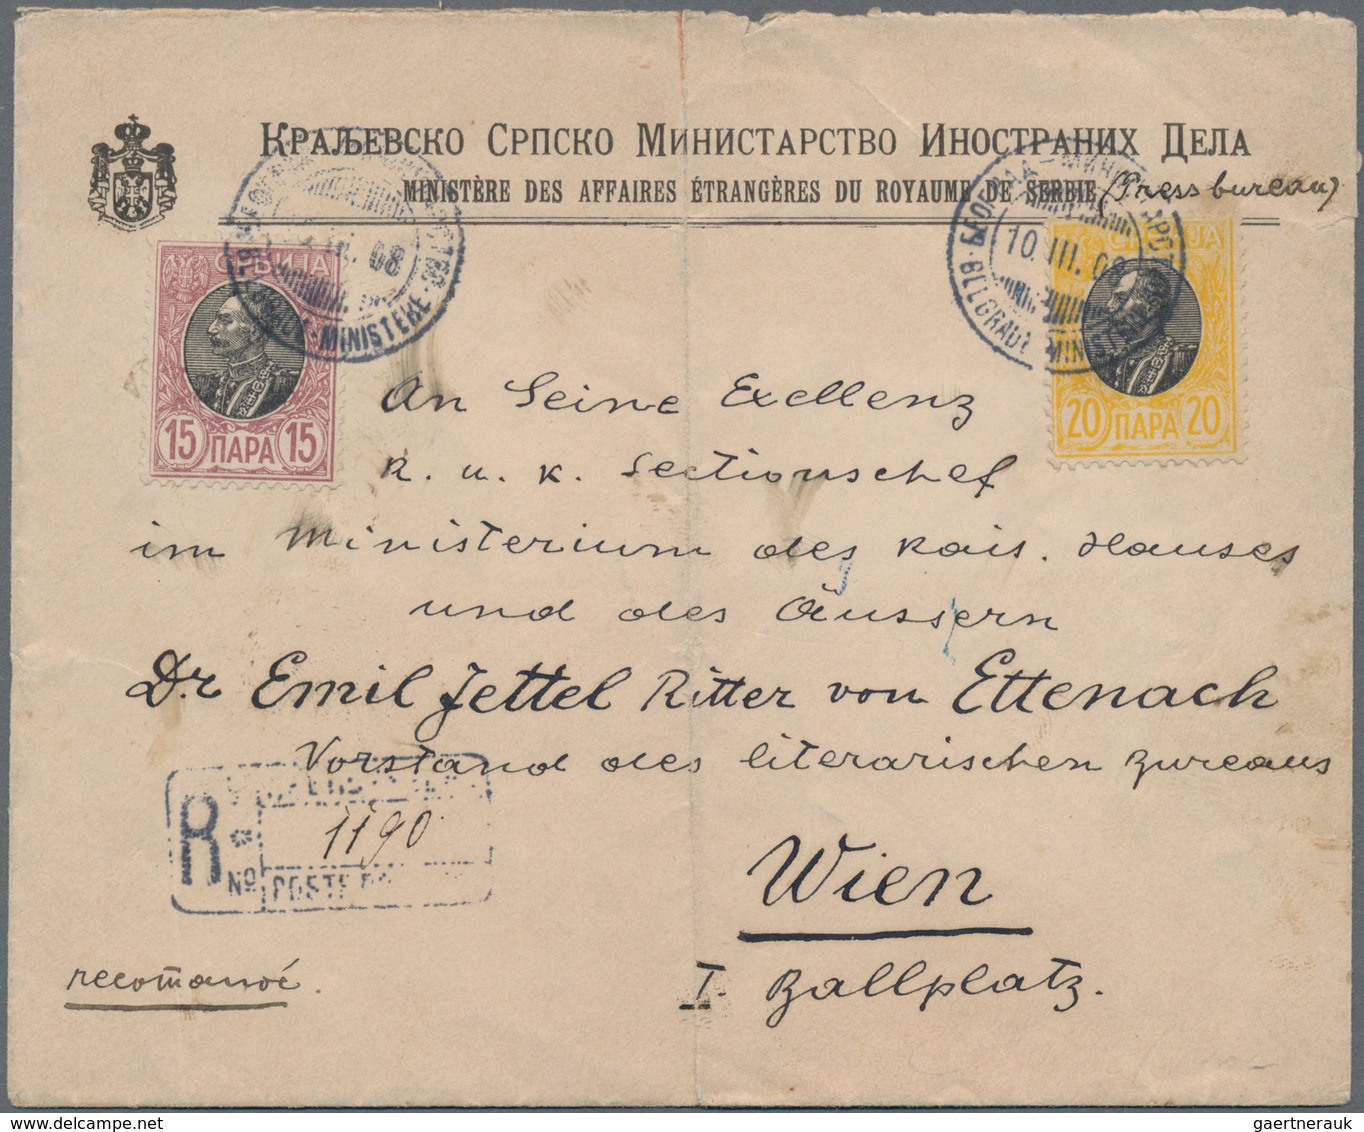 КРАЉЕВСКО СРПСКО МИНИСТАРСТВО ИНОСТРАНИХ ДЕЛА
MINISTÈRE DES AFFAIRES ÉTRANGÈRES DU ROYAUME DE SERBIE (Pressbureau)
СРБИЈА
15 ПАРА 15
08
MINISTERE
СРБИЈА
20 ПАРА 20
10. III. 08
BELGRADE MINISTERE
An Seine Exellenz
k. u. k. Sectionschef
im Ministerium des kais. Hauses
und des Äussern
Dr Emil Jettel Ritter von Ettenach
Vorstand des literarischen Bureaus
R
1190
No POSTE
Wien
I. Ballplatz.
recom̄andé.
gaertnerauk @ delcampe.net